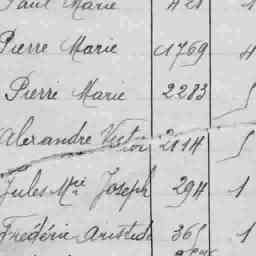 Paul Marie 421 1
Pierre Marie 1769 4
Pierre Marie 2283 5
Alexandre Victor 2114 5
Jules Mie Joseph 294 1
Frédéric Aristide 365 1